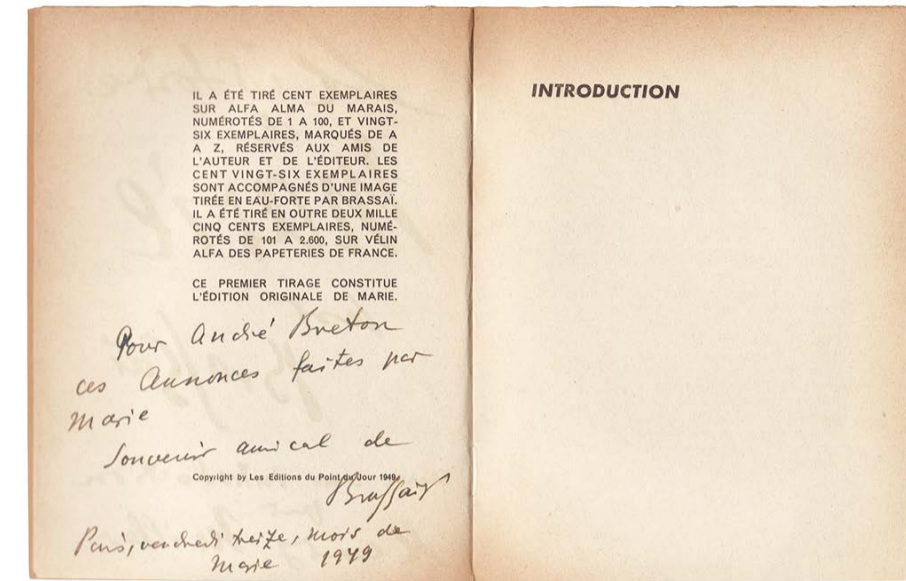 IL A ÉTÉ TIRÉ CENT EXEMPLAIRES
SUR ALFA ALMA DU MARAIS,
NUMÉROTÉS DE 1 A 100, ET VINGT-
SIX EXEMPLAIRES, MARQUÉS DE A
A Z, RÉSERVÉS AUX AMIS DE
L'AUTEUR ET DE L'ÉDITEUR. LES
CENT VINGT-SIX EXEMPLAIRES
SONT ACCOMPAGNÉS D'UNE IMAGE
TIRÉE EN EAU-FORTE PAR BRASSAÏ.
IL A ÉTÉ TIRÉ EN OUTRE DEUX MILLE
CINQ CENTS EXEMPLAIRES, NUMÉ-
ROTÉS DE 101 A 2.600, SUR VÉLIN
ALFA DES PAPETERIES DE FRANCE.
CE PREMIER TIRAGE CONSTITUE
L'ÉDITION ORIGINALE DE MARIE.
Pour André Breton
ces Annonces faites par
Marie
Souvenir amical de
Copyright by Les Editions du Point du Jour 1949
Brassaï
Paris, vendredi treize, mois de
Marie 1949
INTRODUCTION